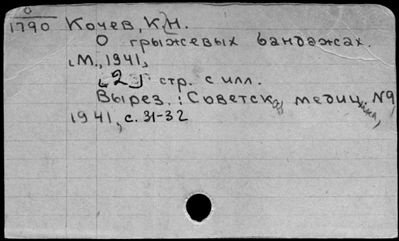 0
1790 Кочев, К.Н.
О грыжевых бандажах.
[М., 1941,
[2] стр. с илл.
Вырез.: Советская медицина, N9,
1941, с. 31-32